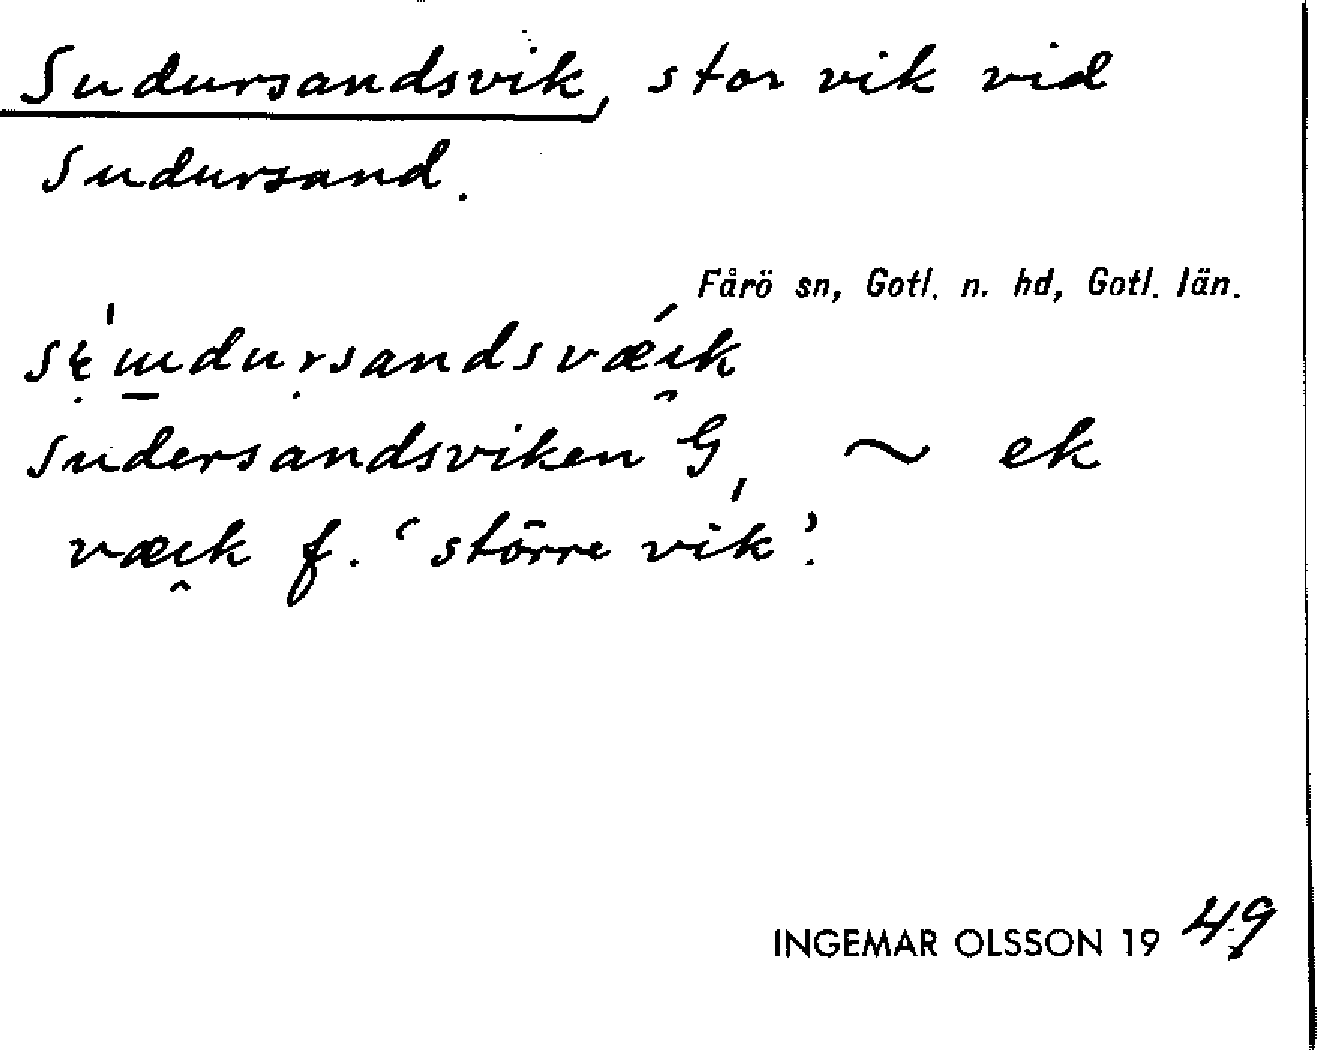 Sudursandsvik, stor vik vid
Sudursand.
Fårö sn, Gotl. n. hd, Gotl. län.
sudersandsviken G, ~ ek
væık f. ‘större vik’.
INGEMAR OLSSON 1949